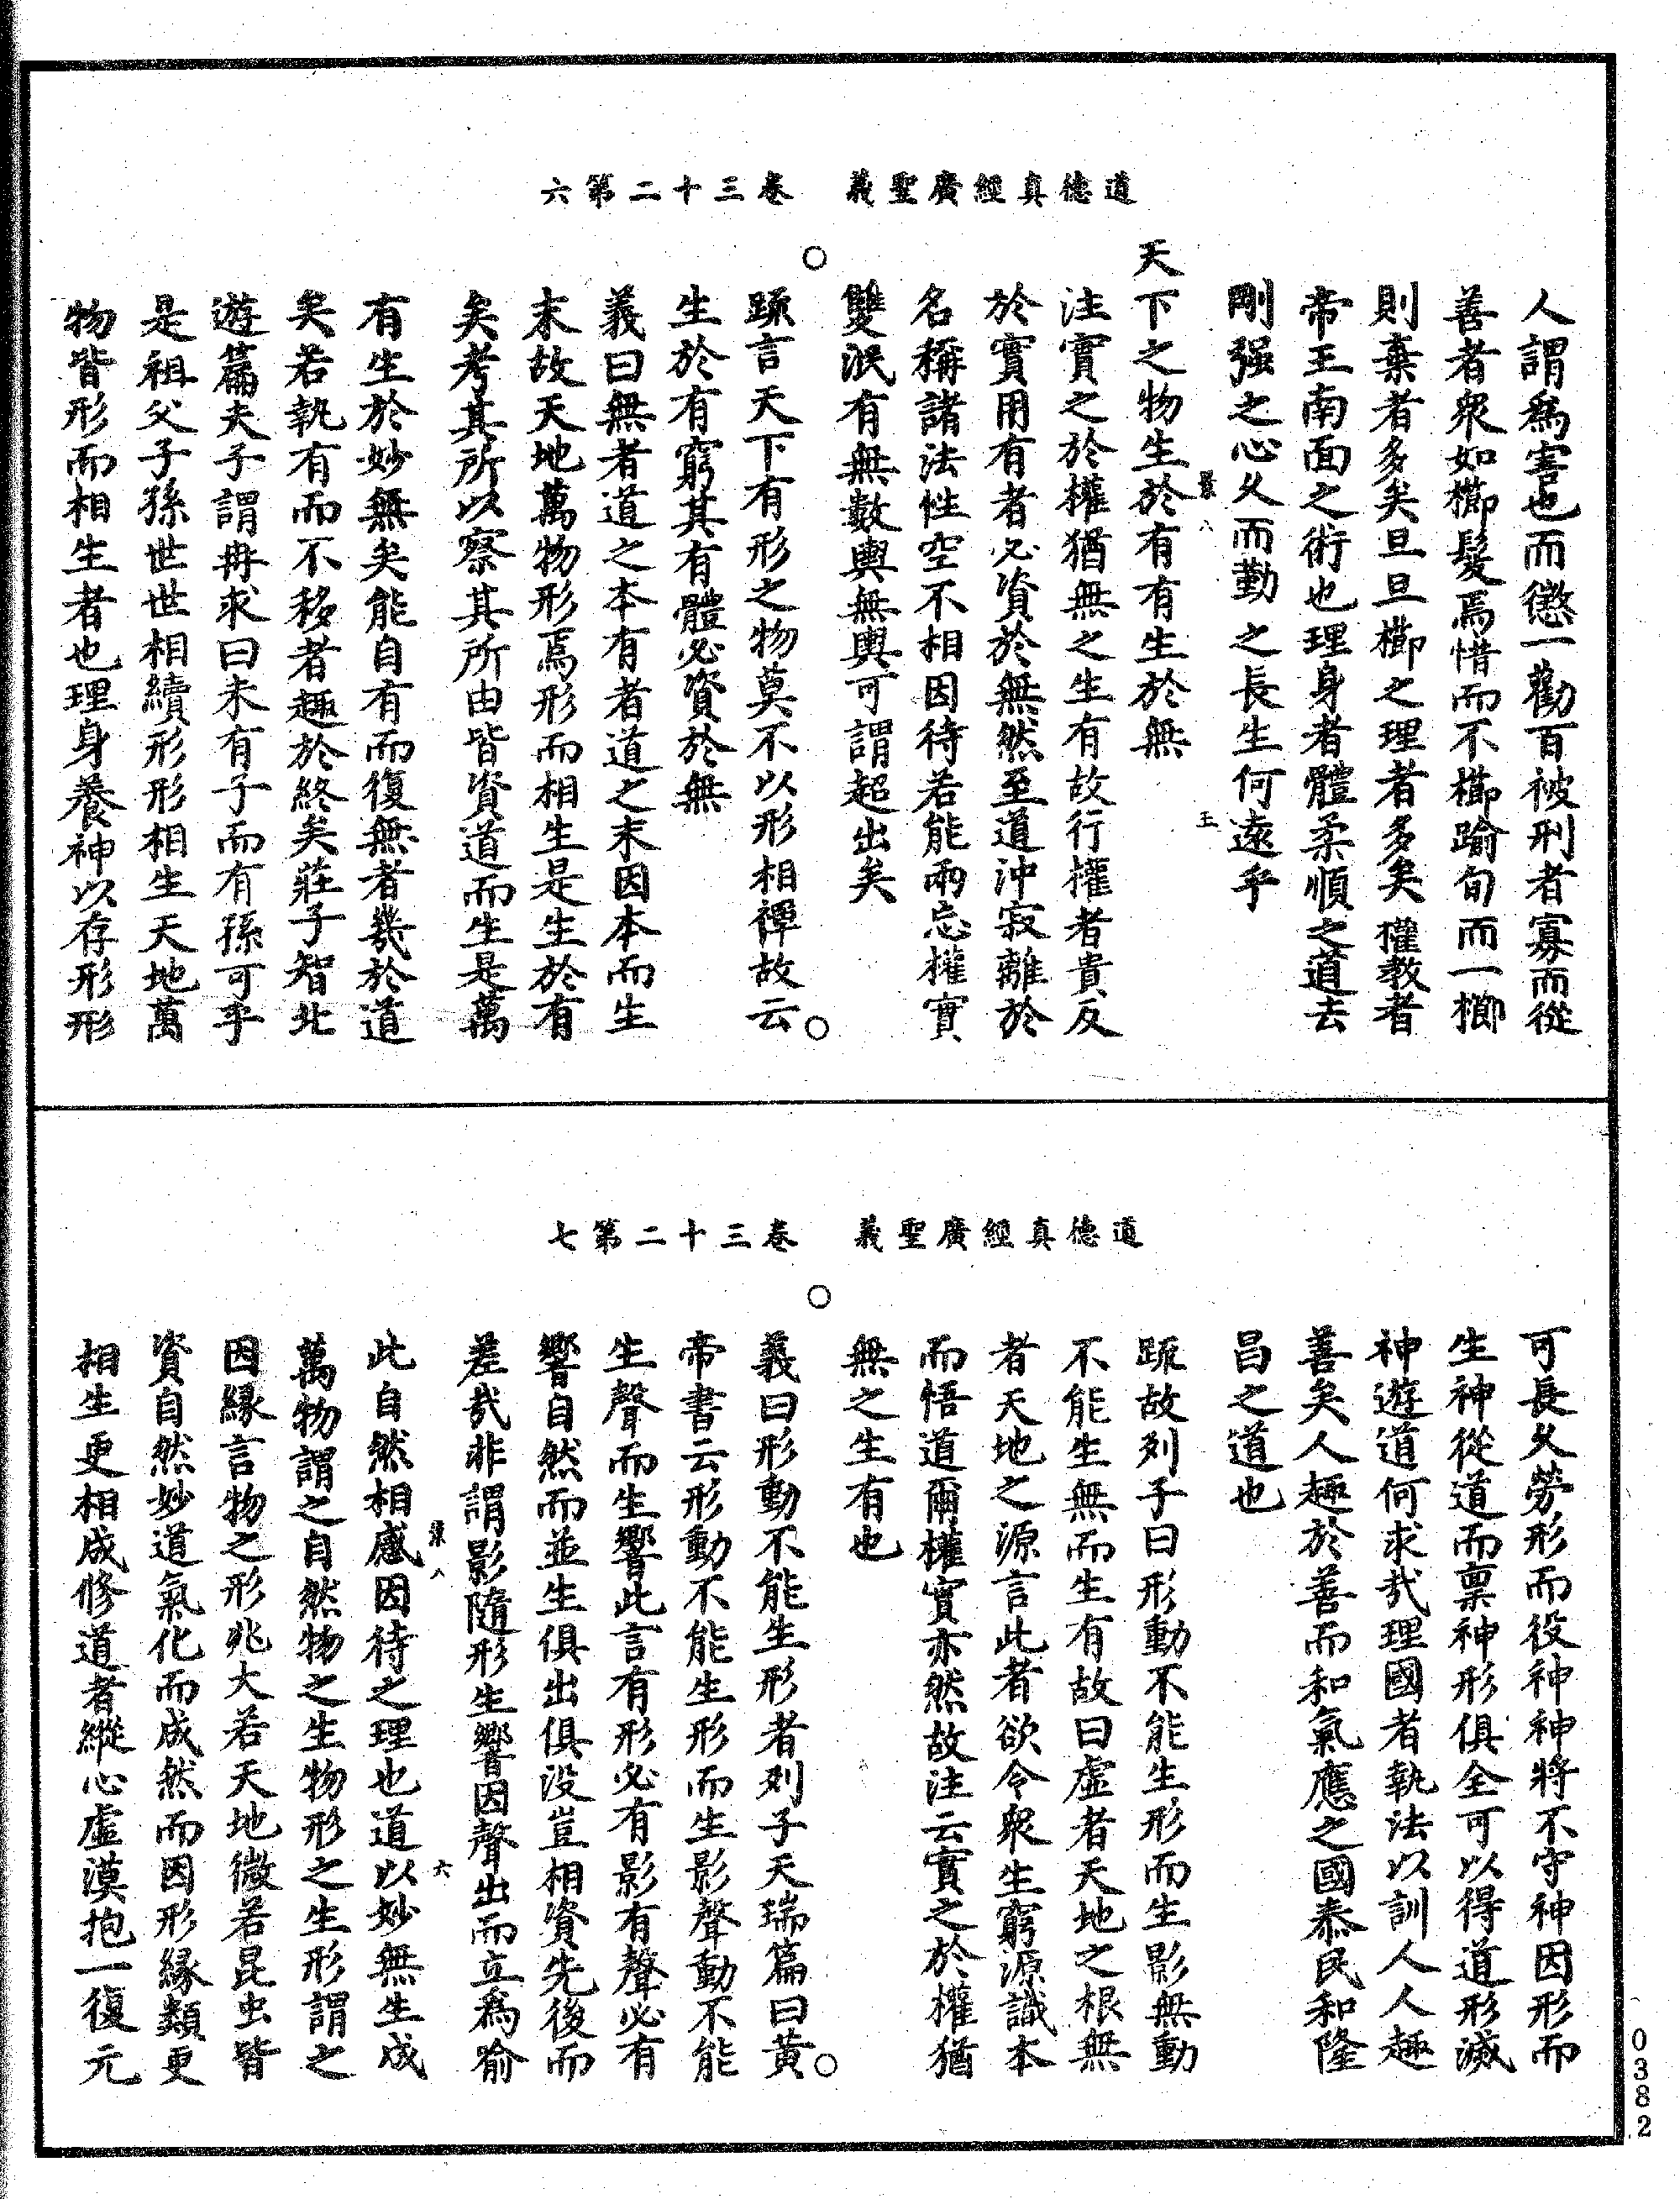 道德真經廣聖義　卷三十二第六
人謂為害也而懲一勸百被刑者寡而從
善者衆如櫛髮焉惜而不櫛踰旬而一櫛
則棄者多矣旦旦櫛之理者多矣權教者
帝王南面之術也理身者體柔順之道去
剛强之心久而勤之長生何遠乎
天下之物生於有有生於無
注實之於權猶無之生有故行權者貴反
於實用有者必資於無然至道沖寂離於
名稱諸法性空不相因待若能兩忘權實
雙泯有無數輿無輿可謂超出矣
疏言天下有形之物莫不以形相禪故云
生於有窮其有體必資於無
義曰無者道之本有者道之末因本而生
末故天地萬物形焉形而相生是生於有
矣考其所以察其所由皆資道而生是萬
有生於妙無矣能自有而復無者幾於道
矣若執有而不移者趣於終矣莊子智北
遊篇夫子謂冉求曰未有子而有孫可乎
是祖父子孫世世相續形形相生天地萬
物皆形而相生者也理身養神以存形形
道德真經廣聖義　卷三十二第七
可長久勞形而役神神將不守神因形而
生神從道而稟神形俱全可以得道形滅
神遊道何求哉理國者執法以訓人人趣
善矣人趣於善而和氣應之國泰民和隆
昌之道也
疏故列子曰形動不能生形而生影無動
不能生無而生有故曰虛者天地之根無
者天地之源言此者欲令衆生窮源識本
而悟道爾權實亦然故注云實之於權猶
無之生有也
義曰形動不能生形者列子天瑞篇曰黃
帝書云形動不能生形而生影聲動不能
生聲而生響此言有形必有影有聲必有
響自然而並生俱出俱没豈相資先後而
差哉非謂影隨形生響因聲出而立為喻
此自然相感因待之理也道以妙無生成
萬物謂之自然物之生物形之生形謂之
因緣言物之形兆大若天地微若昆虫皆
資自然妙道氣化而成然而因形緣類更
相生更相成修道者縱心虛漠抱一復元
0382